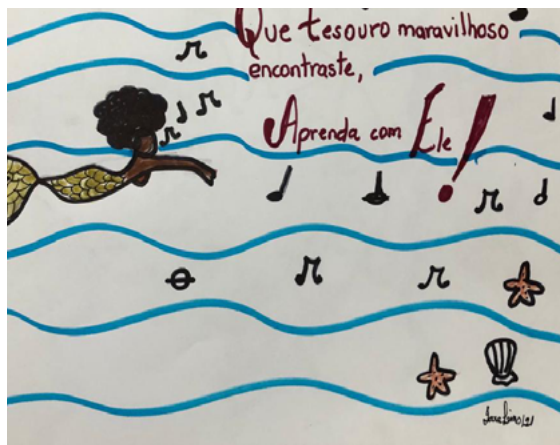 Que tesouro maravilhoso
encontraste,
Aprenda com Ele!